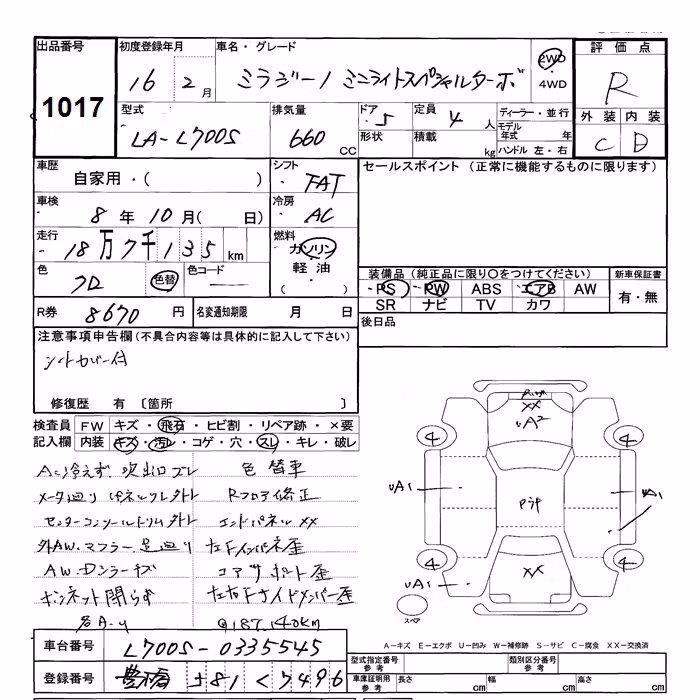 出品番号 初度登録年月 車名・グレード 評価点
1017 16 2月 ミラジーノ ミニライトスペシャルターボ 2WD・4WD R
型式 排気量 ドア 定員 ディーラー・並行 外装 内装
LA-L700S 660CC 5 4人 モデル年式 年 C D
形状 積載 kg ハンドル 左・右
車歴 シフト セールスポイント(正常に機能するものに限ります)
自家用・( ) FAT
車検 冷房
8年10月(日) AC
走行 燃料
18万7千135km ガソリン
軽油
( )
色 色替 色コード 装備品(純正品に限り○をつけてください) 新車保証書
クロ PS PW ABS エアB AW 有・無
SR ナビ TV カワ
R券 8670円 名変通知期限 月 日 後日品
注意事項申告欄(不具合内容等は具体的に記入して下さい)
シートカバー付
修復歴 有 〔箇所 〕
検査員 FW キズ・飛石・ヒビ割・リペア跡・×要
記入欄 内装 キズ・汚レ・コゲ・穴・スレ・キレ・破レ
Aごり冷えず 吹出口ズレ 色替車
メータ廻りパネルツメ外レ Rフロア修正
センターコンソールトリム外レ エンドパネルXX
外AW.マフラー.足廻り 左Fインパネ歪
AW.Dシラーキズ コアサポート歪
ボンネット閉らず 左右Fサイドメンバー歪
各A-U @187,140km
R,ナシ
XX
UA2
4 4
UA1 Pシワ UA1
4 4
UA1 XX
スペア
A-キズ E-エクボ U-凹み W-補修跡 S-サビ C-腐食 XX-交換済
車台番号 L700S-0335545
登録番号 豊橋 581 く 7496
型式指定番号 参考 類別区分番号 参考
車庫証明用 参考 長さ cm 幅 cm 高さ cm